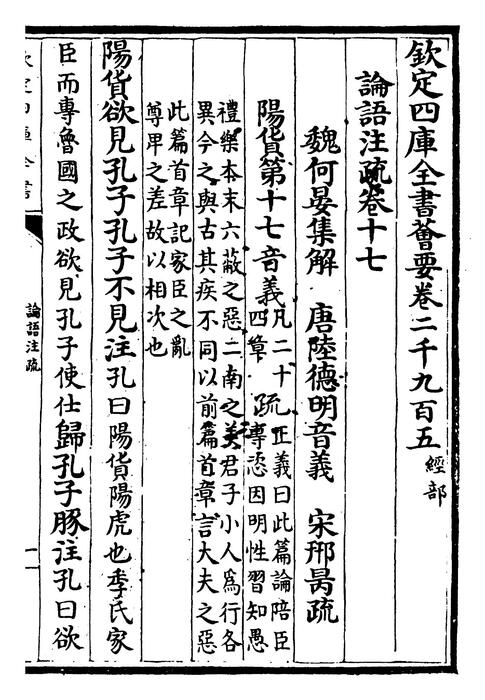 欽定四庫全書薈要卷二千九百五 經部
論語注疏卷十七
魏何晏集解 唐陸德明音義 宋邢昺疏
陽貨第十七音義 凡二十
四章 疏 正義曰此篇論陪臣
專恣因明性習知愚
禮樂本末六蔽之惡二南之美君子小人為行各
異今之與古其疾不同以前篇首章言大夫之惡
此篇首章記家臣之亂
尊卑之差故以相次也
陽貨欲見孔子孔子不見注孔曰陽貨陽虎也季氏家
臣而專魯國之政欲見孔子使仕歸孔子豚注孔曰欲
欽定四庫全書
論語注疏
一